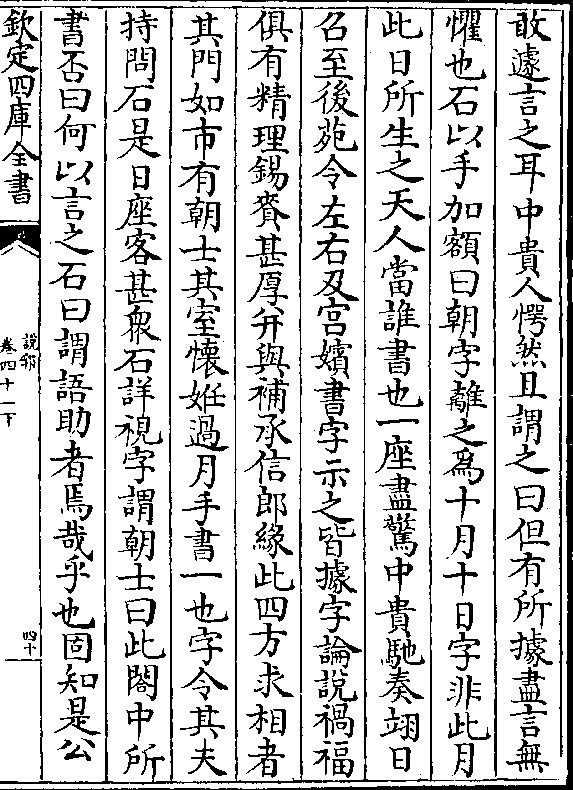 敢遽言之耳中貴人愕然且謂之曰但有所據盡言無
懼也石以手加額曰朝字離之為十月十日字非此月
此日所生之天人當誰書也一座盡驚中貴馳奏翊日
召至後苑令左右及宮嬪書字示之皆據字論說禍福
俱有精理錫賚甚厚并與補承信郎緣此四方求相者
其門如市有朝士其室懷姙過月手書一也字令其夫
持問石是日座客甚衆石詳視字謂朝士曰此閤中所
書否曰何以言之石曰謂語助者焉哉乎也固知是公
欽定四庫全書
說郛
卷四十一下
四十